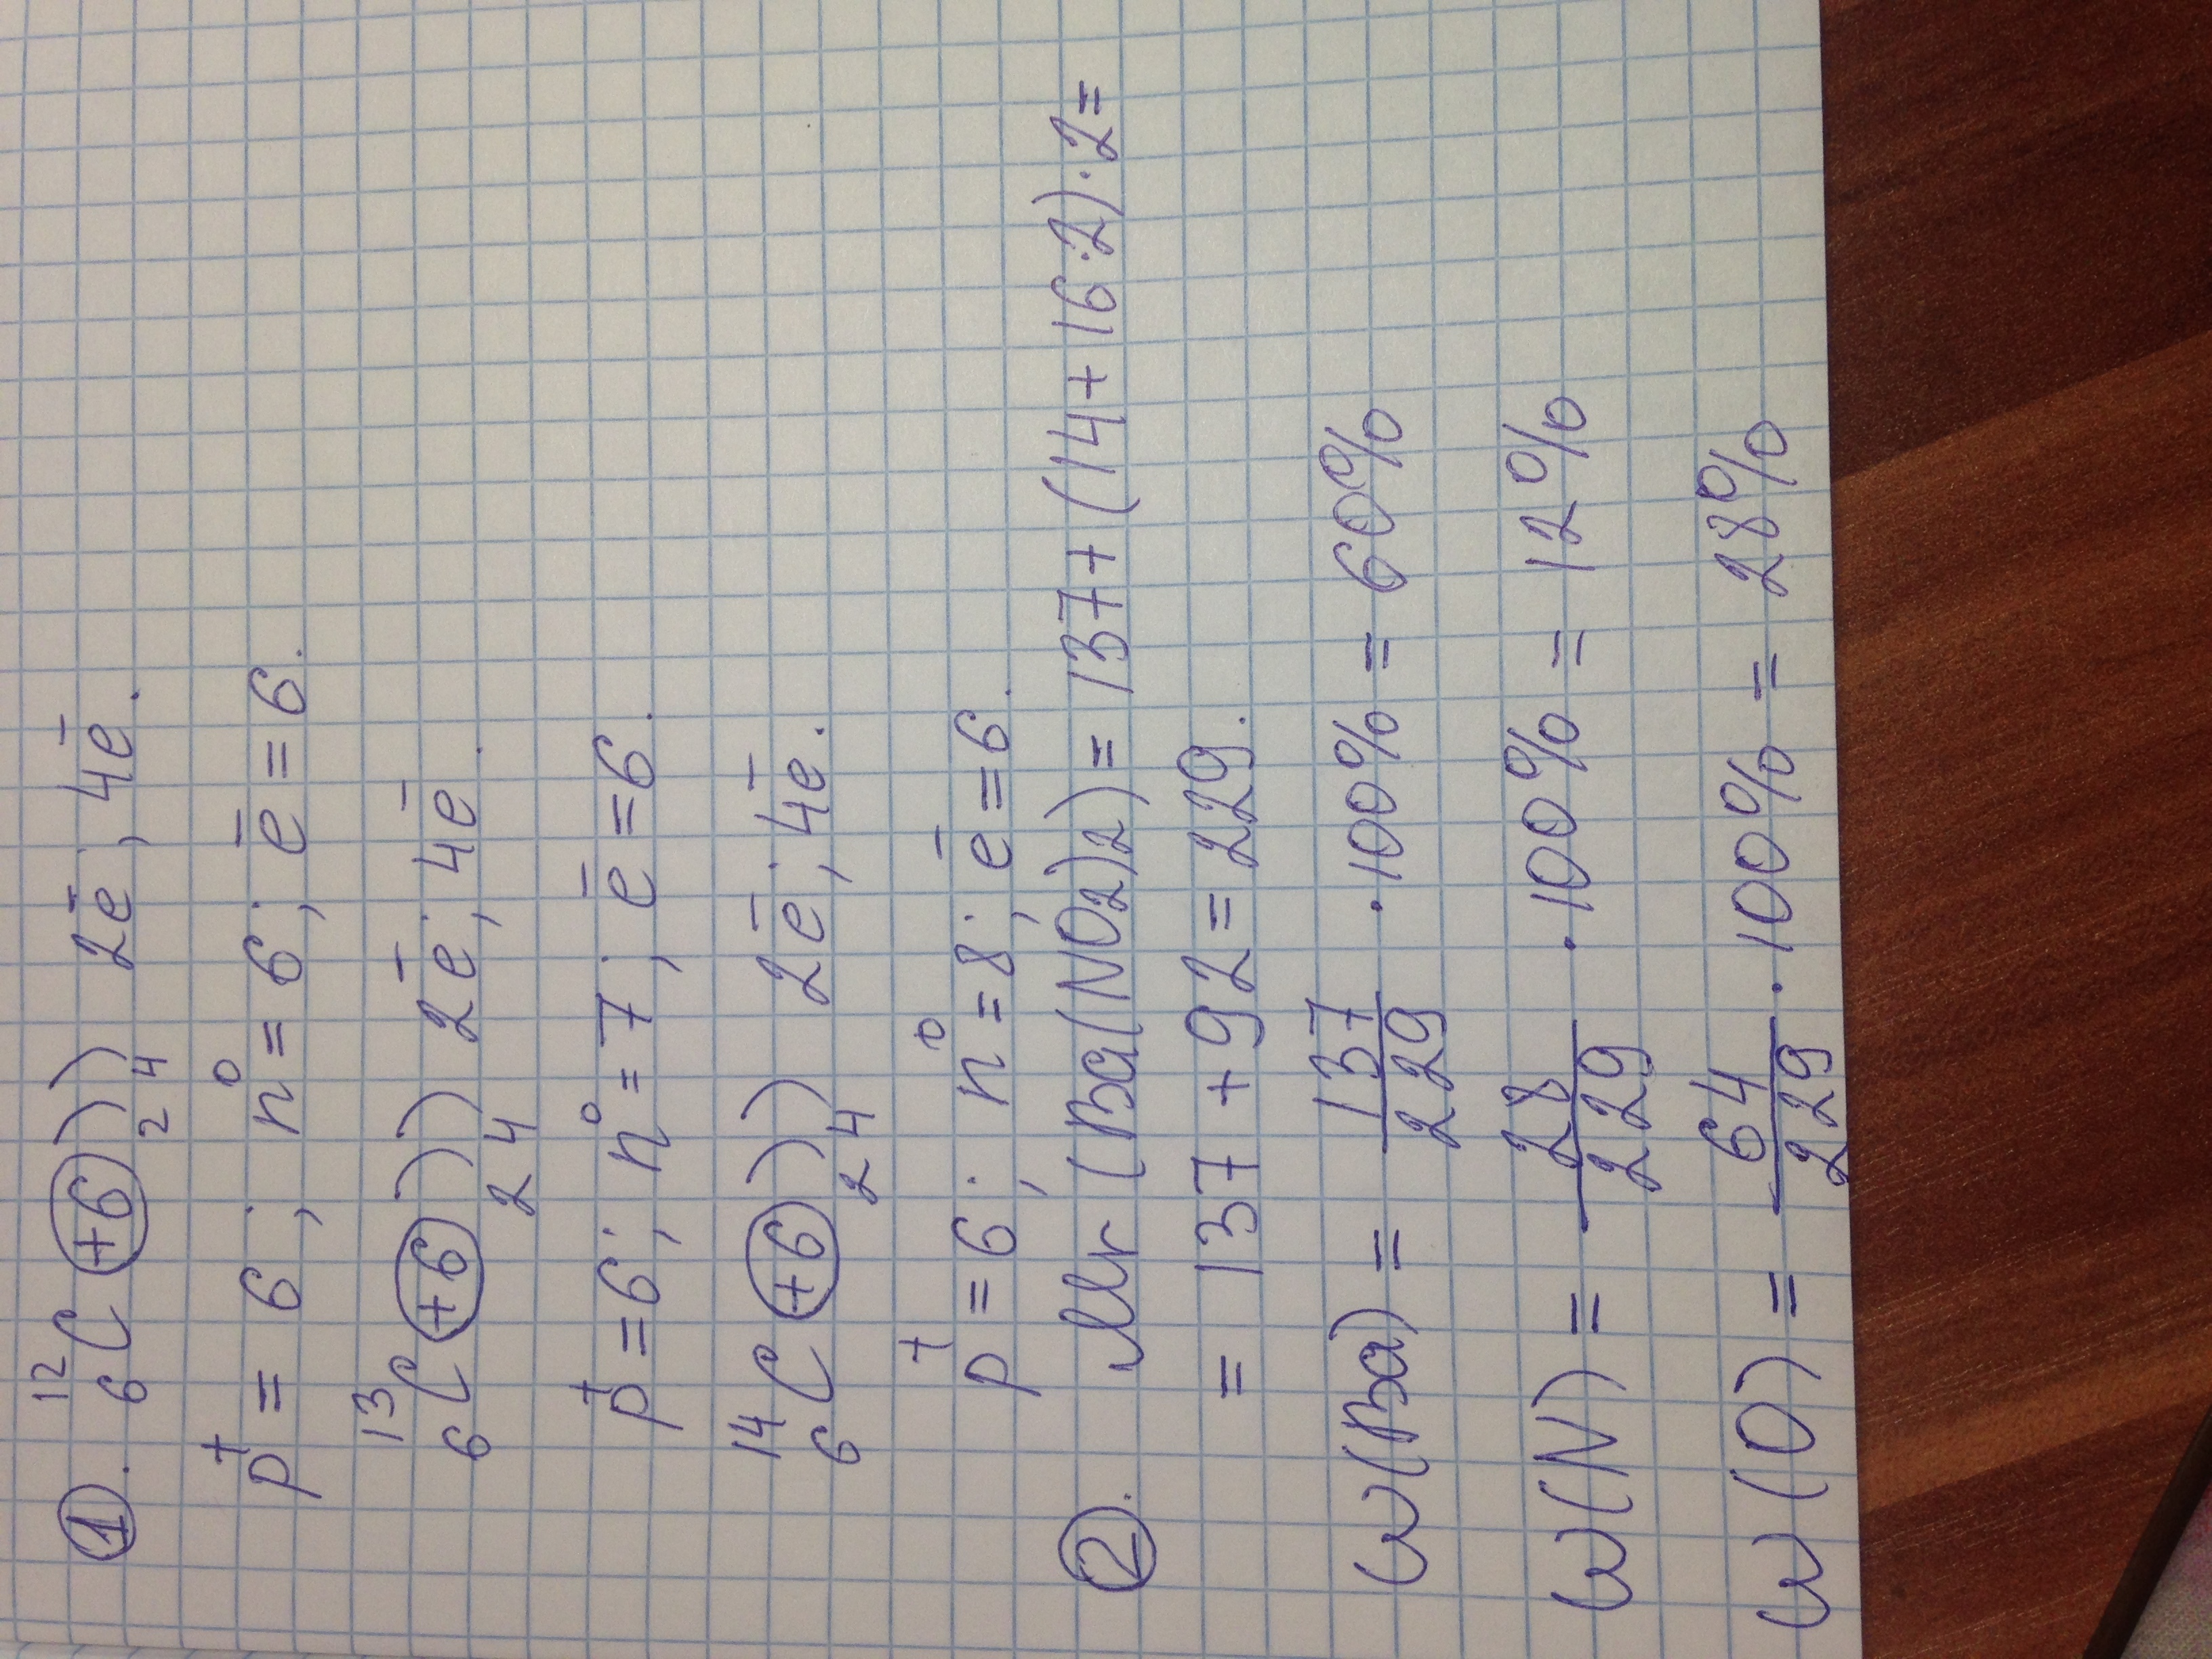 ①. ¹²₆C (+6) ) ) 2ē; 4ē.
2 4
p⁺ = 6; n⁰ = 6; ē = 6.
¹³₆C (+6) ) ) 2ē; 4ē.
2 4
p⁺ = 6; n⁰ = 7; ē = 6.
¹⁴₆C (+6) ) ) 2ē; 4ē.
2 4
p⁺ = 6; n⁰ = 8; ē = 6.
②. Mr (Ba(NO₂)₂) = 137 + (14 + 16·2)·2 =
= 137 + 92 = 229.
ω(Ba) = 137/229 · 100% = 60%
ω(N) = 28/229 · 100% = 12%
ω(O) = 64/229 · 100% = 28%